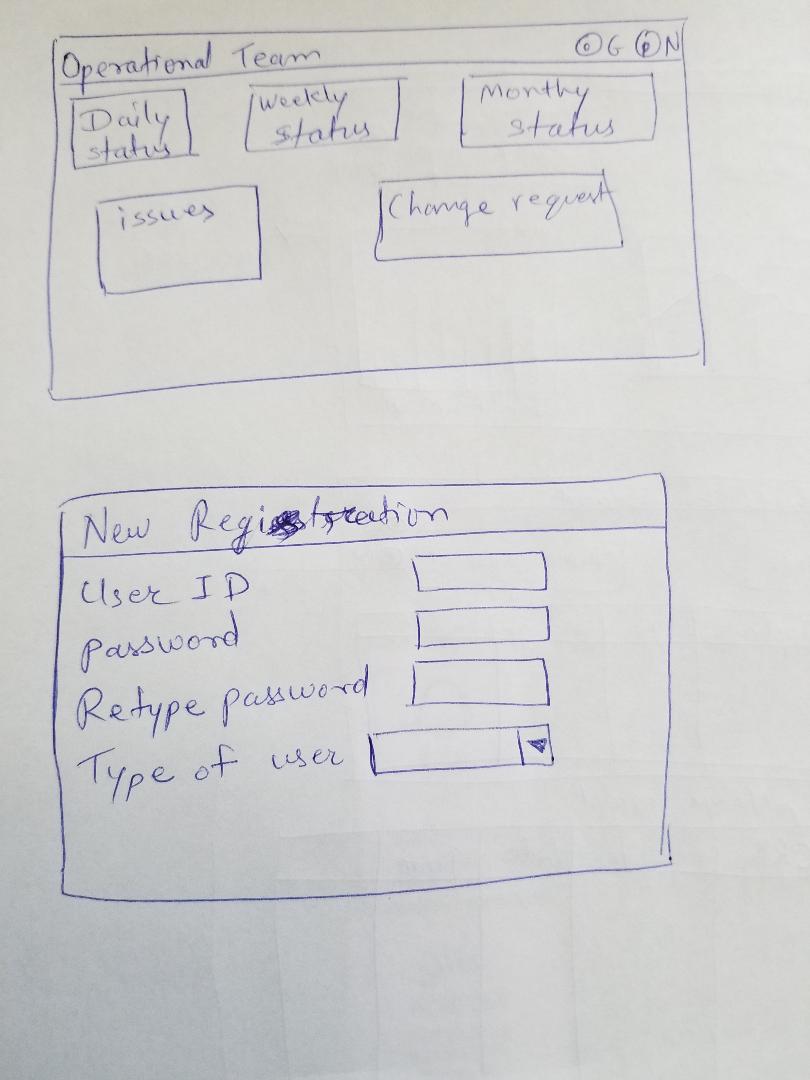 Operational Team
G N
Daily
status
Weekly
status
Monthy
status
issues
Change request
New Registration
User ID
password
Retype password
Type of user